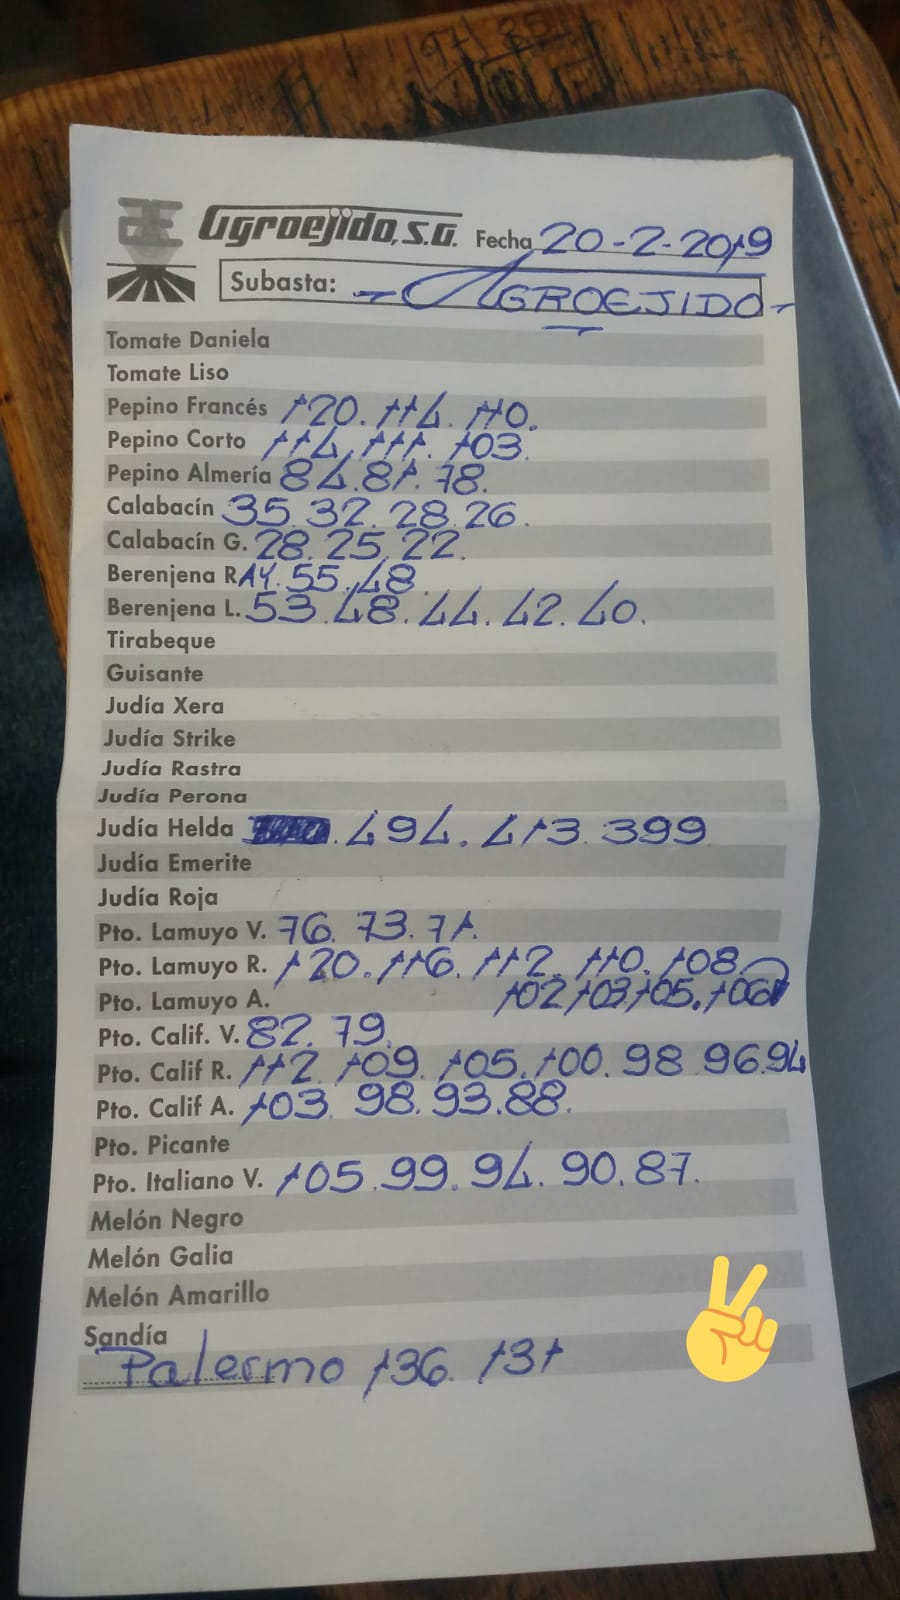 97 85
AE Agroejido, S.A. Fecha 20-2-2019
Subasta: - AGROEJIDO -
Tomate Daniela
Tomate Liso
Pepino Francés 120. 114. 110.
Pepino Corto 114. 111. 103.
Pepino Almería 84. 81. 78.
Calabacín 35. 32. 28. 26.
Calabacín G. 28. 25. 22.
Berenjena RAY. 55. 48.
Berenjena L. 53. 48. 44. 42. 40.
Tirabeque
Guisante
Judía Xera
Judía Strike
Judía Rastra
Judía Perona
Judía Helda . 494. 413. 399
Judía Emerite
Judía Roja
Pto. Lamuyo V. 76. 73. 71.
Pto. Lamuyo R. 120. 116. 112. 110. 108
Pto. Lamuyo A. 102 103. 105. 106
Pto. Calif. V. 82. 79.
Pto. Calif R. 112. 109. 105. 100. 98 96.94
Pto. Calif A. 103. 98. 93. 88.
Pto. Picante
Pto. Italiano V. 105. 99. 94. 90. 87.
Melón Negro
Melón Galia
Melón Amarillo
Sandía
Palermo 136. 131